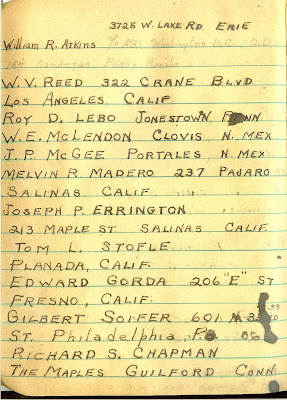 3725 W. LAKE RD. ERIE
William R. Atkins c/o AGO, Washington D.C.,
154 Sandejas Pasay, Manila
W. V. REED 322 CRANE BLVD
LOS ANGELES CALIF.
ROY D. LEBO JONESTOWN PENN
W. E. MCLENDON CLOVIS N. MEX
J. P. MCGEE PORTALES N MEX
MELVIN R. MADERO 237 PAJARO
SALINAS CALIF.
JOSEPH P. ERRINGTON
213 MAPLE ST. SALINAS CALIF.
TOM L. STOFLE
PLANADA, CALIF.
EDWARD GORDA 206 "E" ST
FRESNO, CALIF.
GILBERT SOIFER 601
ST. Philadelphia, Pa
RICHARD S. CHAPMAN
THE MAPLES GUILFORD CONN